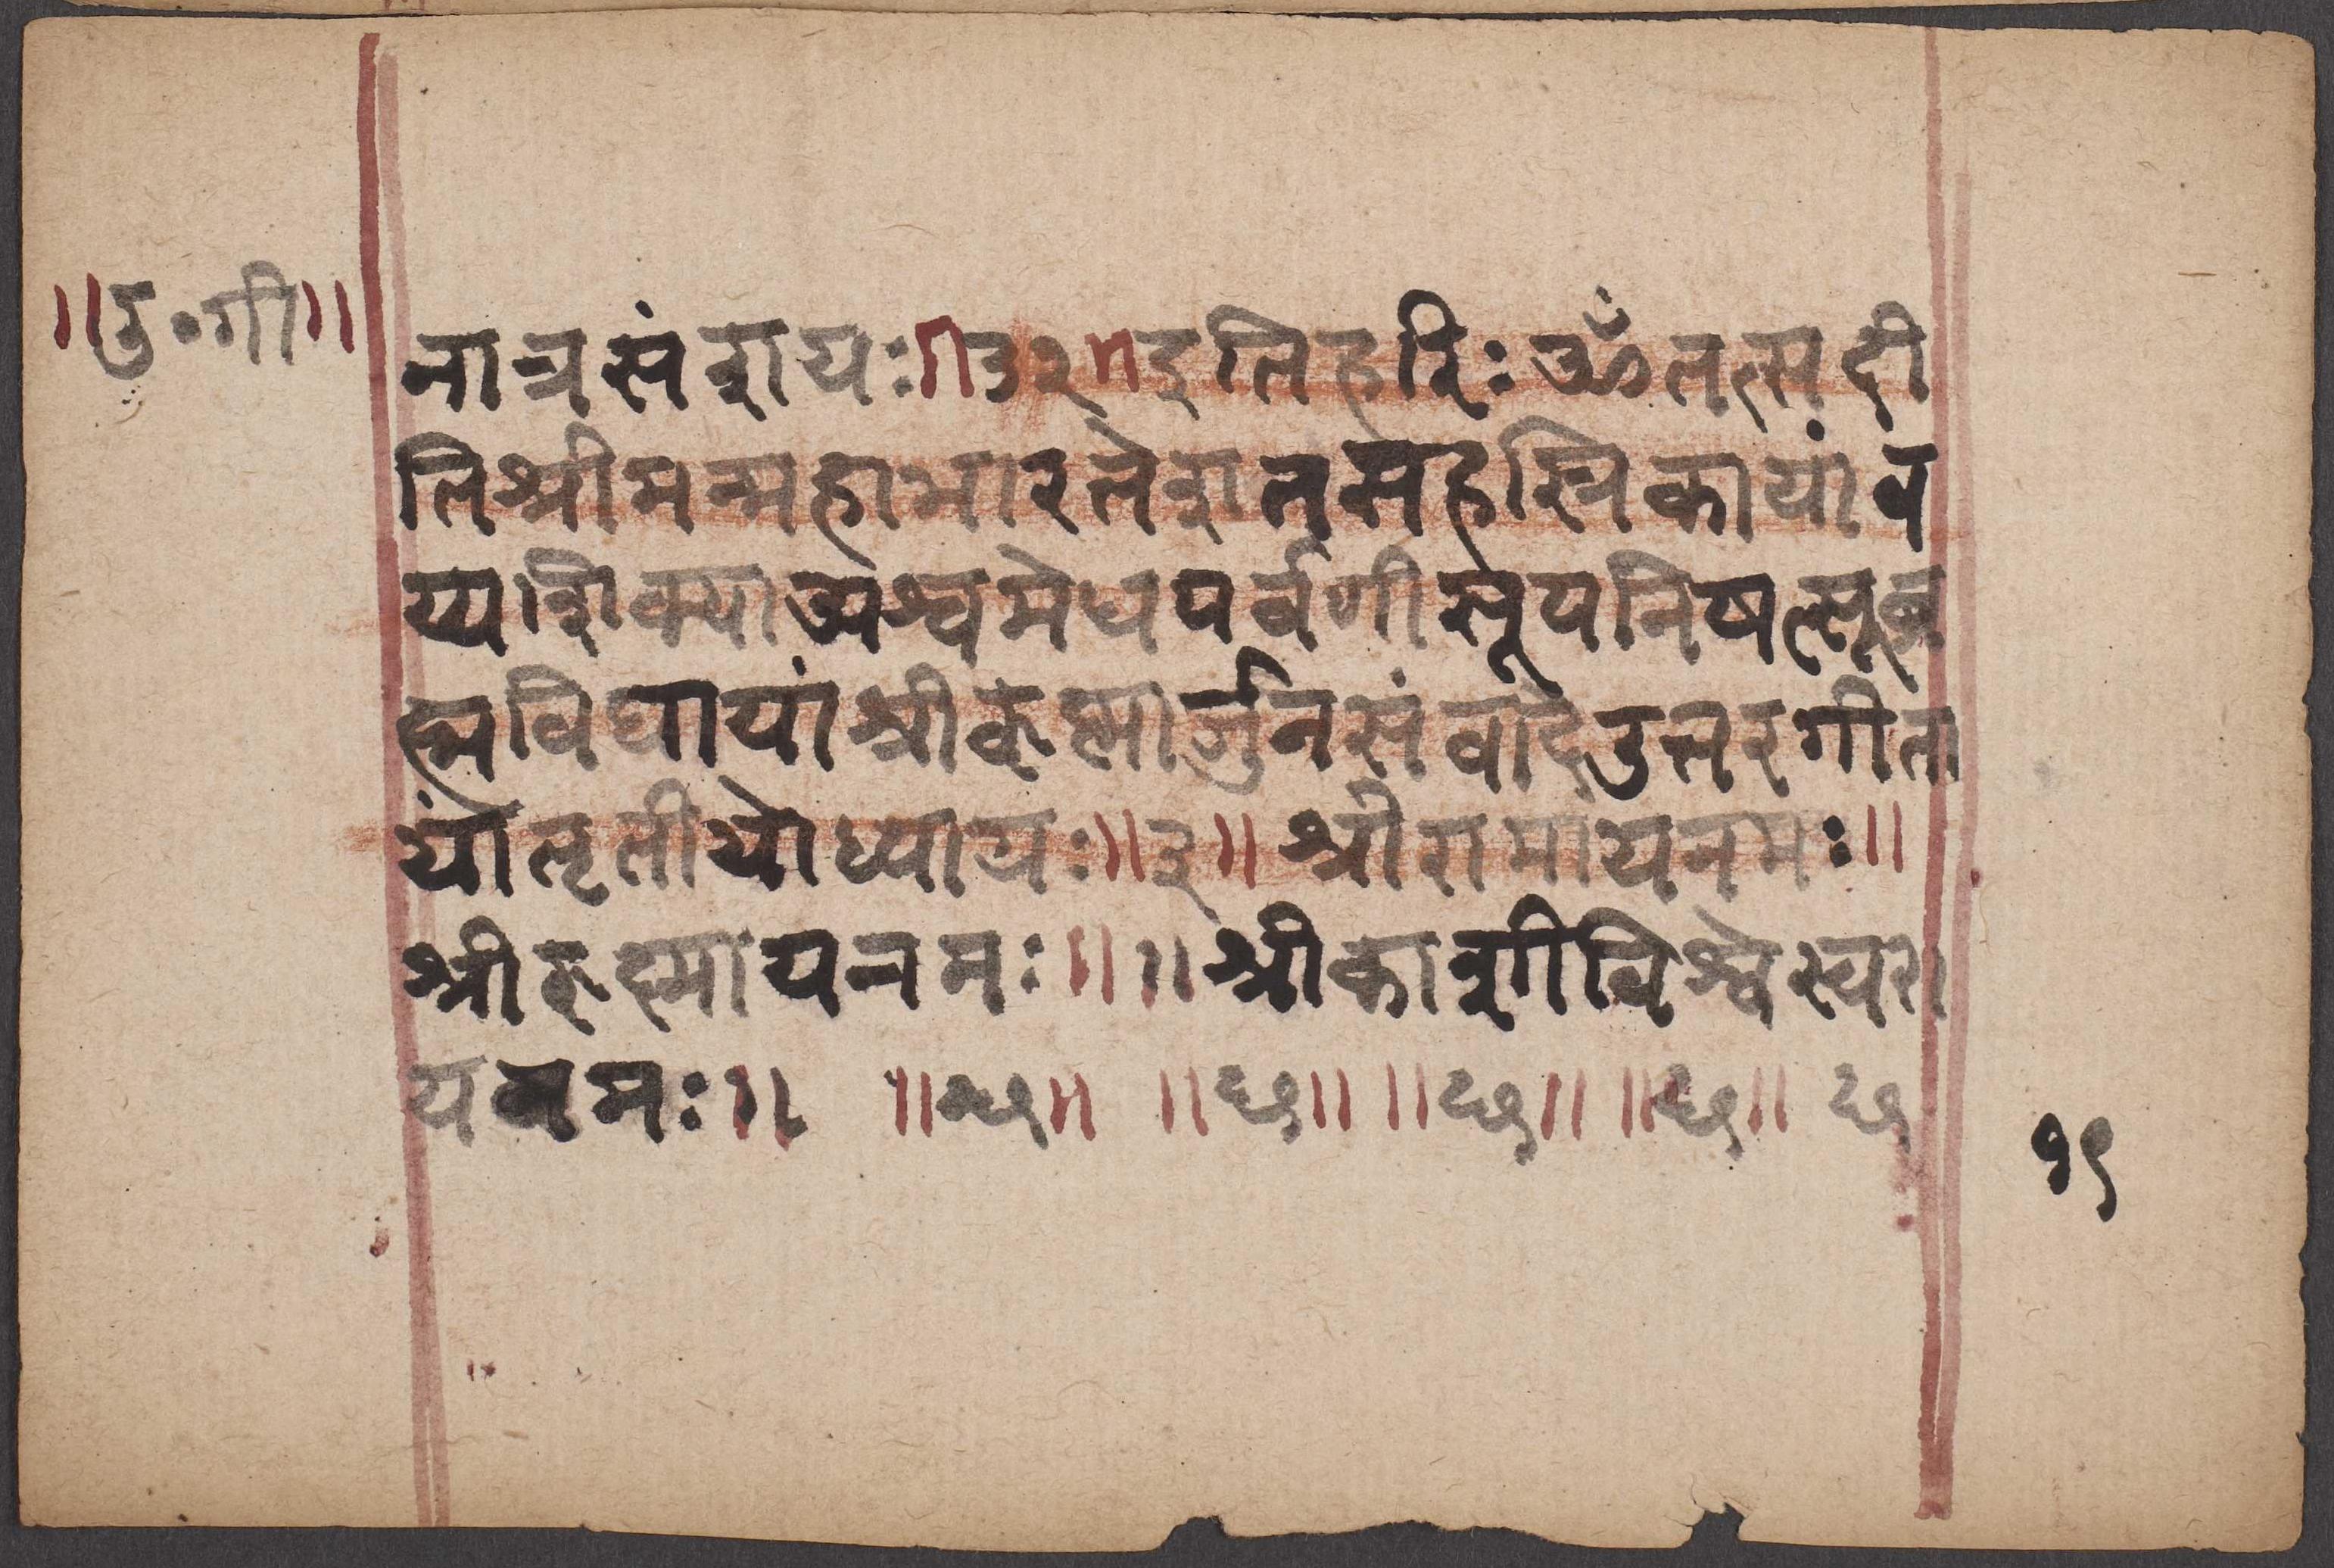 ॥उ॰गी॥
नात्रसंशयः॥३२॥इतिहरिःॐतत्सदी
तिश्रीमन्महाभारतेशतसहस्त्रिकायांव
य्यशिक्याअश्वमेधपर्वणीसूपनिषत्सूब्र
ह्मविद्यायांश्रीकृष्णार्जुनसंवादेउत्तरगीता
यांतृतीयोध्यायः॥३॥श्रीरामायनमः॥
श्रीकृष्णायनमः॥॥श्रीकाशीविश्वेस्वरा
यनमः॥ ॥छ॥ ॥छ॥ ॥छ॥ ॥छ॥ छ
१९